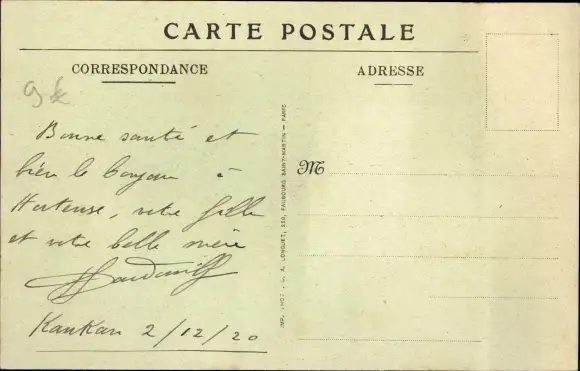 CARTE POSTALE
CORRESPONDANCE
ADRESSE
Bonne santé et
bien le bonjour à
Hortense, votre fille
et votre belle mère
Kankan 2/12/20
M
IMP. PHOT. A. LONGUET, 250, FAUBOURG SAINT-MARTIN — PARIS